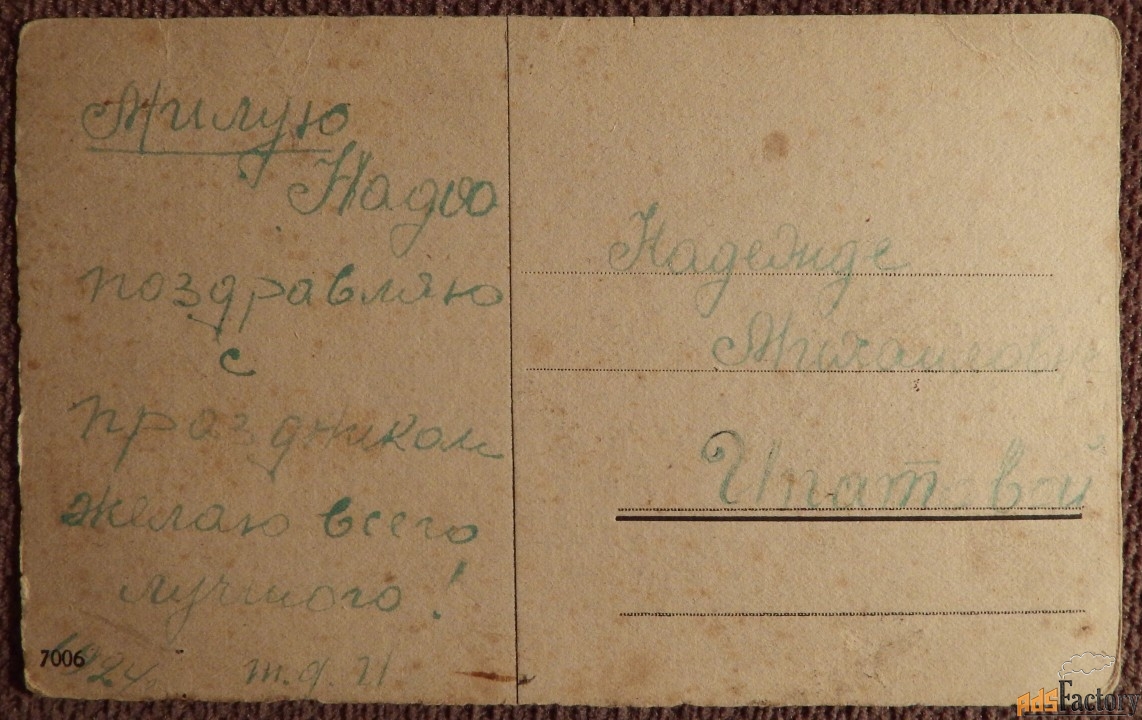 Милую
Надю
поздравляю
с
праздником
желаю всего
лучшого!
7006
т.д. И
Надежде
Михайловне
Ипатовой
AdsFactory